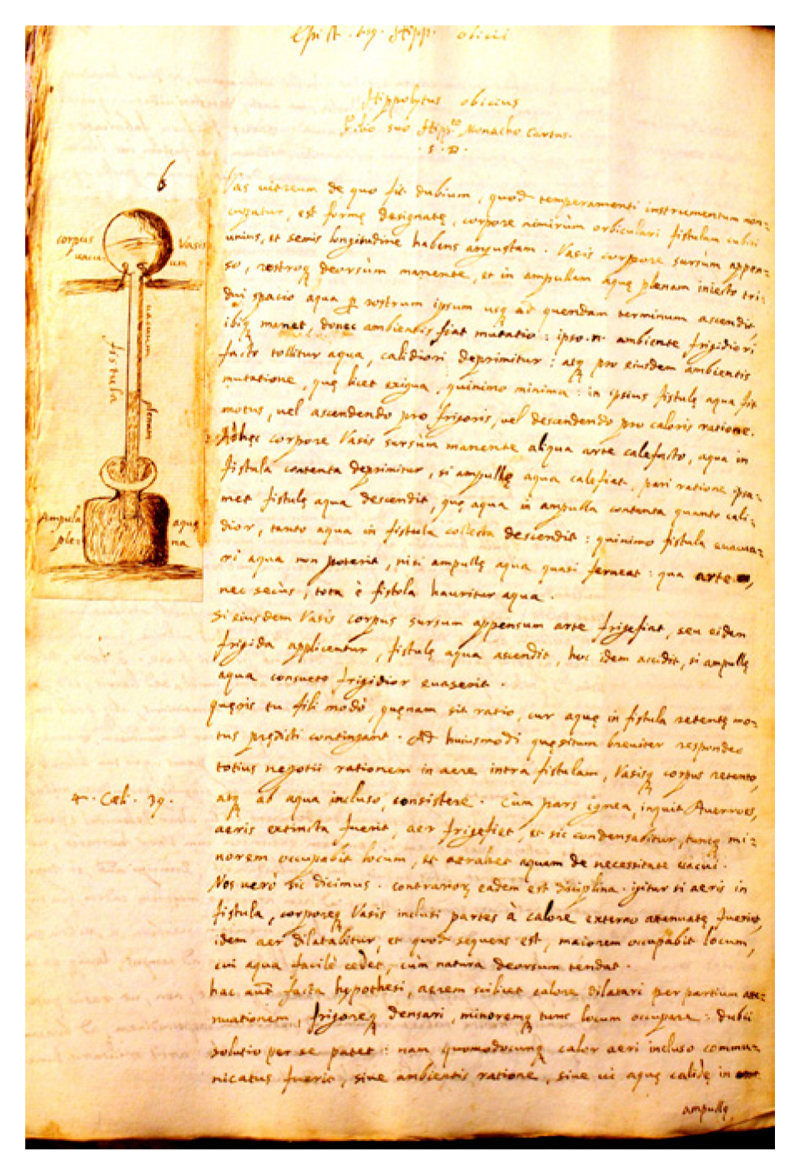 Epist. Hipp. obicii
Hippolytus obicius
filio suo Hipp.to Monacho Cartus.
S. D.
6
corpus vasis
vacuum
vacuum
fistula
plenum
Ampula aquę
plena
Vas vitreum de quo fit dubium, quod temperamenti instrumentum non-
cupatur, est formę designatę, corpore nimirùm orbiculari fistulam cubiti
unius, et semis longitudine habens angustam. Vasis corpore sursùm appen-
so, rostroq deorsùm manente, et in ampullam aquę plenam iniecto tri-
dui spacio aqua p rostrum ipsum usq ad quendam terminum ascendit,
ibiq manet, donec ambientis fiat mutatio: ipso .n. ambiente frigidiori
facto tollitur aqua, calidiori deprimitur: atq pro eiusdem ambientis
mutatione, quę licet exigua, quinimo minima: in ipsius fistulę aqua fit
motus, vel ascendendo pro frigoris, vel descendendo pro caloris ratione.
Adhęc corpore Vasis sursum manente aliqua arte calefacto, aqua in
fistula contenta deprimitur, si ampullę aqua calefiat. pari ratione ipsa-
met fistulę aqua descendit, quę aqua in ampulla contenta quanto cali-
dior, tanto aqua in fistula collecta descendit: quinimo fistula evacua-
ri aqua non poterit, nisi ampullę aqua quasi ferveat: qua arte,
nec secùs, tota è fistola hauritur aqua.
Si eiusdem Vasis corpus sursum appensum arte frigefiat, seu eidem
frigida applicentur, fistulę aqua ascendit, hoc idem accidit, si ampullę
aqua consueto frigidior evaserit.
quęris tu fili modò, quęnam sit ratio, cur aquę in fistula retentę mo-
tus prędicti contingant. Ad huiusmodi quęsitum breviter respondeo
totius negotii rationem in aere intra fistulam, Vasisq corpus retento,
4. Cæli. 39.
atq ab aqua incluso, consistere. Cùm pars ignea, inquit Averroes,
aeris extincta fuerit, aer frigefiet, et sic condensabitur, tuncq mi-
norem occupabit locum, et atrahet aquam de necessitate vacui.
Nos verò sic dicimus. contrarioq eadem est disciplina. igitur si aeris in
fistula, corporeq Vasis inclusi partes à calore externo attenuatę fuerint,
idem aer dilatabitur, et quod sequens est, maiorem occupabit locum,
cui aqua facilè cedet, cùm natura deorsum tendat.
hac aut facta hypothesi, aerem scilicet calore dilatari per partium atte-
nuationem, frigoreq densari, minoremq tunc locum occupare: dubii
solutio per se patet: nam quomodocunq calor aeri incluso commu-
nicatus fuerit, sive ambientis ratione, sive vi aquę calidę in
ampullę